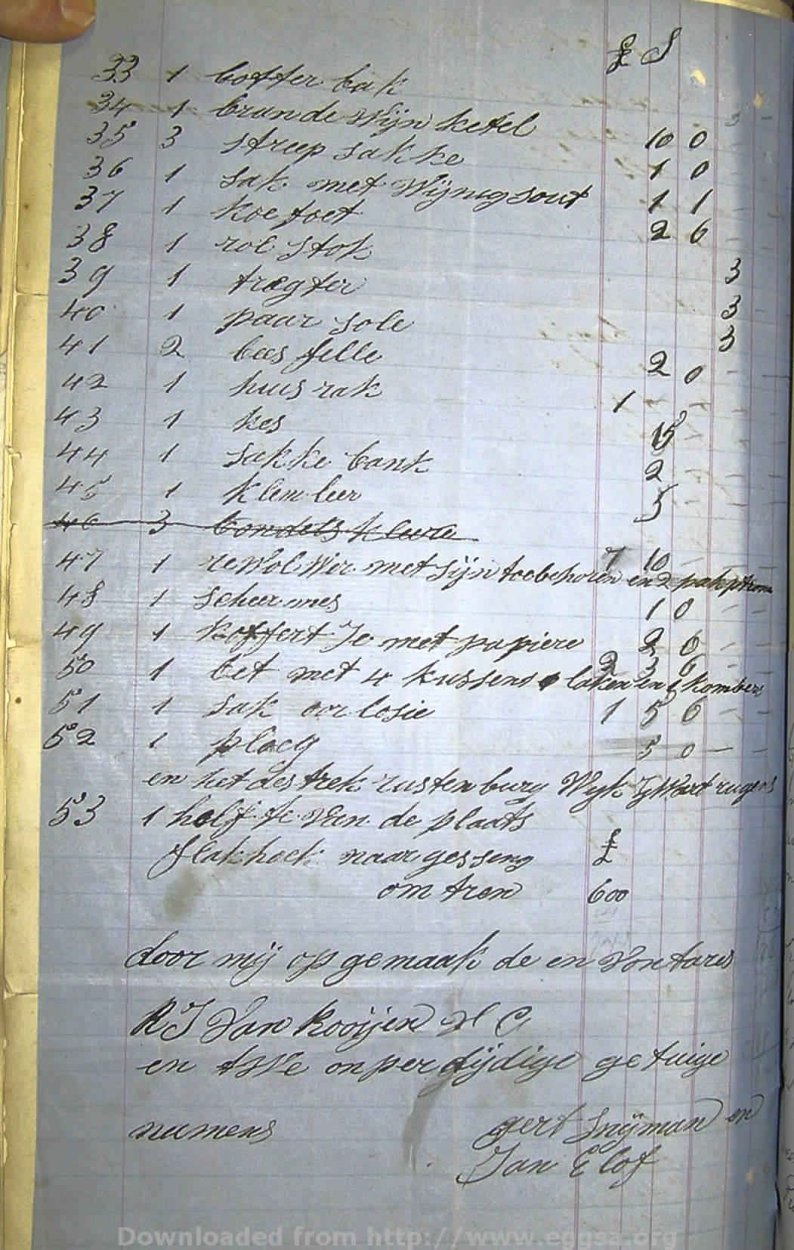 £ S
33 1 botter bak
34 1 brandewijn ketel
35 3 streep sakke 10 0
36 1 sak met Wijnigsout 1 0
37 1 koefoet 1 1
38 1 rol stok 2 6
39 1 tregter 3
40 1 paar sole 3
41 2 bees felle 3
42 1 huis rak 2 0
43 1 kes 1
44 1 sakke bank 15
45 1 klem leer 2
46 3 bondels kleere 5
47 1 reWolWer met sijn toebehoren en 2 7 10
48 1 scheermes 1 0
49 1 koffert Je met papiere 2 6
50 1 bet met 4 kussens laken en kombers 2 3 6
51 1 sak orlosie 1 5 6
52 1 ploeg 5 0
en het destrek rustenburg Wyk
53 1 half te van de plaats
flakhoek naar gesseng £
omtren 600
door mij op gemaak de en Vontaris
R J Van Rooijen V C
en tWe onpertijdige getuige
numens gert Snijman en
Jan Elof
Downloaded from http://www.eggsa.org